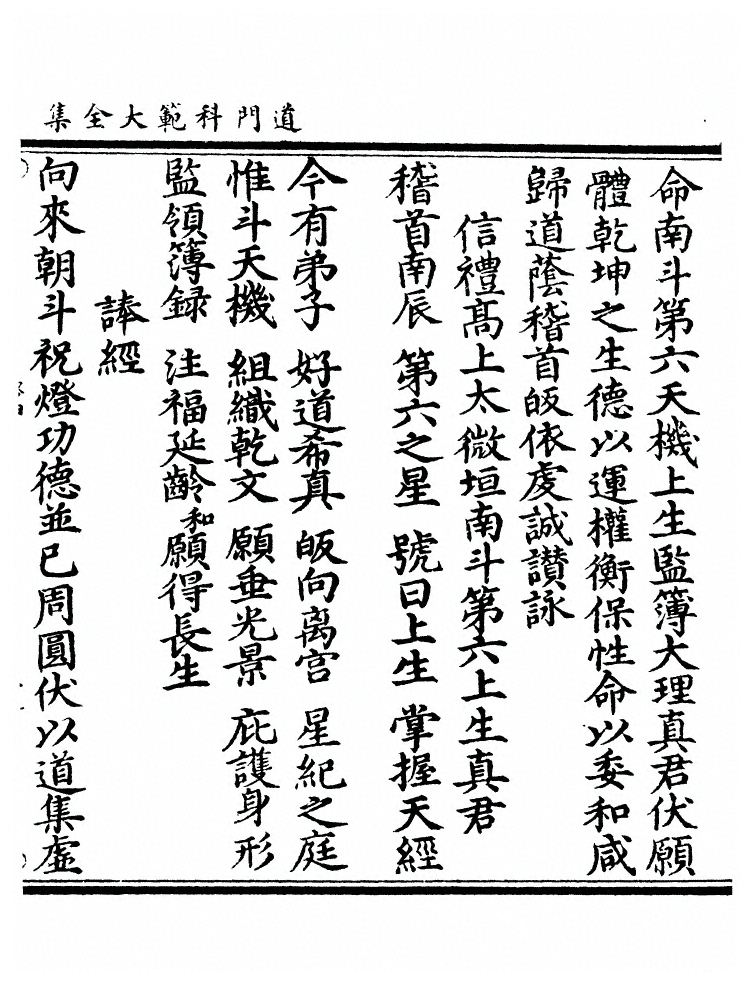 道門科範大全集
命南斗第六天機上生監簿大理真君伏願
體乾坤之生德以運權衡保性命以委和咸
歸道蔭稽首皈依虔誠讃詠
信禮髙上太微垣南斗第六上生真君
稽首南辰 第六之星 號曰上生 掌握天經
今有弟子 好道希真 皈向离宫 星紀之庭
惟斗天機 組織乾文 願垂光景 庇護身形
監領簿録 注福延齡和願得長生
諱經
向來朝斗祝燈功德並已周圓伏以道集虛